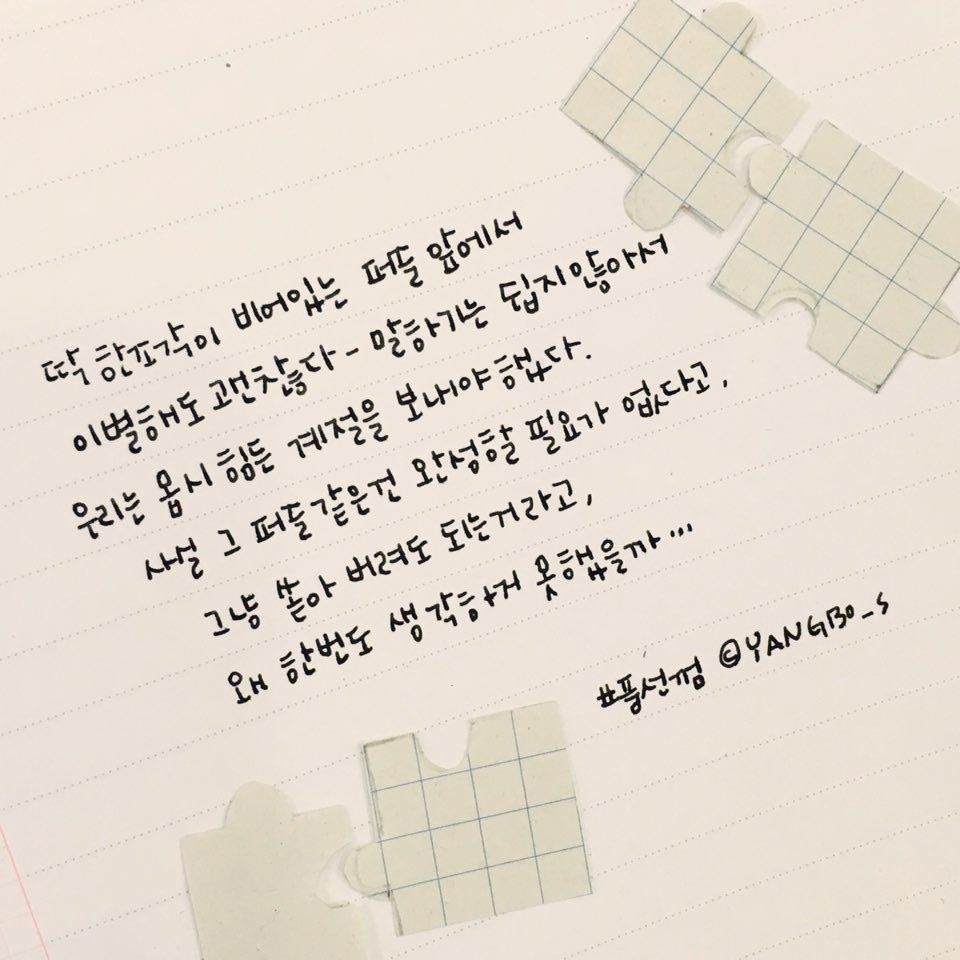 딱 한조각이 비어있는 퍼즐 앞에서
이별해도 괜찮다 - 말하기는 쉽지않아서
우리는 몹시 힘든 계절을 보내야했다.
사실 그 퍼즐같은건 완성할 필요가 없다고,
그냥 쏟아 버려도 되는거라고,
왜 한번도 생각하게 못했을까...
#풍선껌 ©YANGBO_S